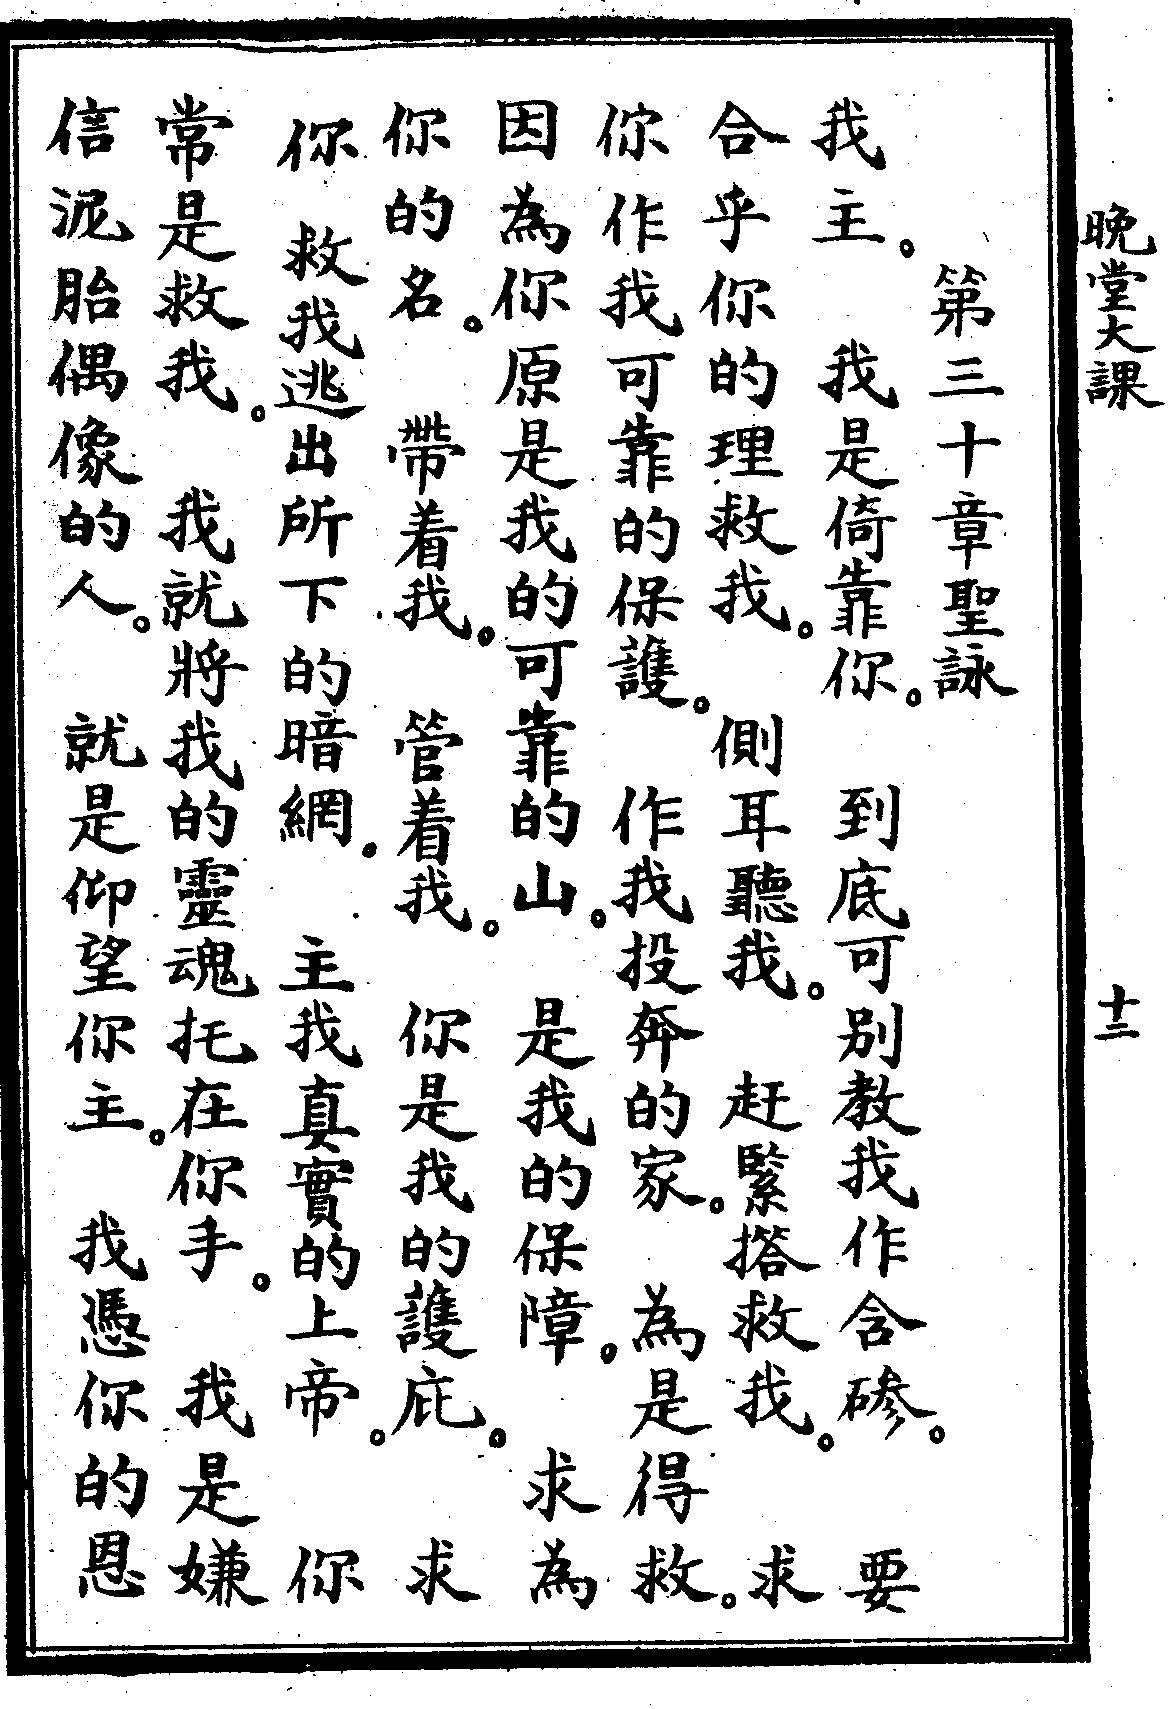 晚堂大課
十二
第三十章聖詠
我主。我是倚靠你。到底可別教我作含磣。要
合乎你的理救我。側耳聽我。赶緊搭救我。求
你作我可靠的保護。作我投奔的家。為是得救。
因為你原是我的可靠的山。是我的保障。求為
你的名。帶着我。管着我。你是我的護庇。求
你救我逃出所下的暗網。主我真實的上帝。你
常是救我。我就將我的靈魂托在你手。我是嫌
信泥胎偶像的人。就是仰望你主。我憑你的恩